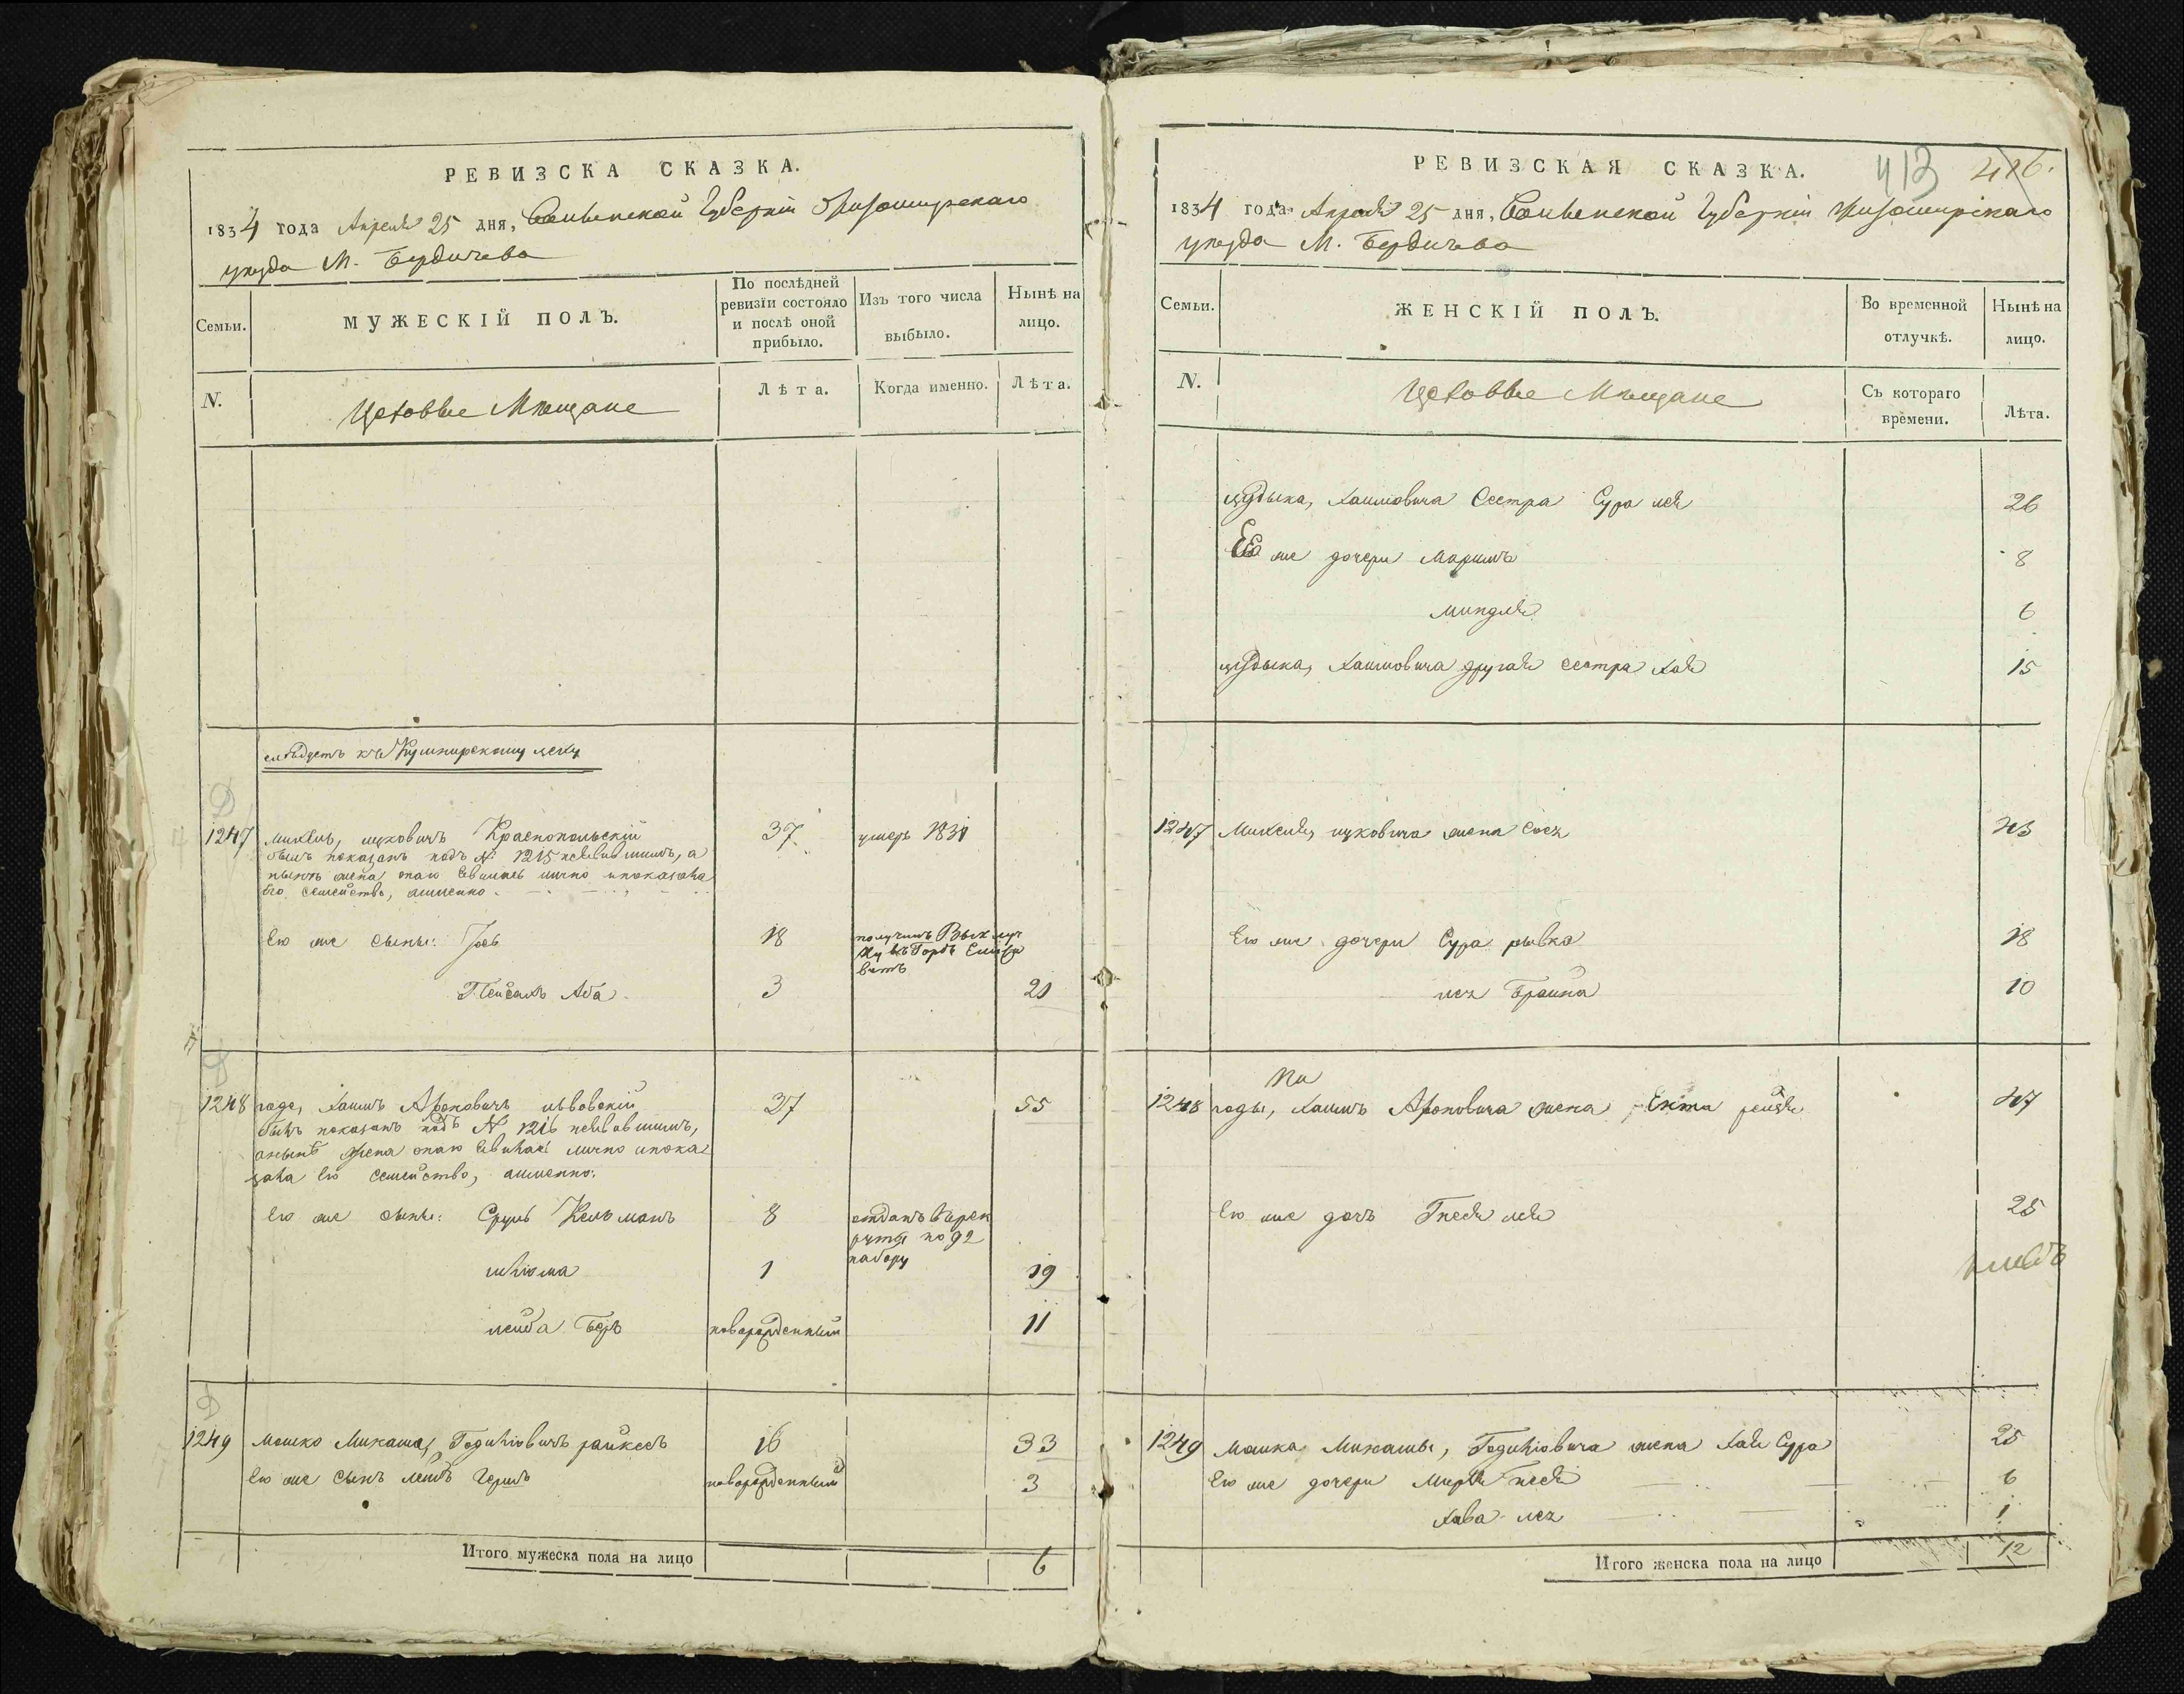 РЕВИЗСКА СКАЗКА.
1834 года Апреля 25 дня, Волынской Губернии Житомирскаго
уезда М. Бердичева
Семьи.
МУЖЕСКІЙ ПОЛЪ.
По послѣдней
ревизіи состояло
и послѣ оной
прибыло.
Изъ того числа
выбыло.
Нынѣ на
лицо.
N.
Цеховые Мещане
Лѣта.
Когда именно.
Лѣта.
следуетъ къ Кушнирскому цеху
1247 Михель, ицковичъ Краснопольскій 37 умеръ 1831
былъ показанъ подъ № 1215 неявившимъ, а
ныне жена онаго явилась лично и показала
его семейство, аименно
Его же сыны: Іось 18 получилъ Выключ
ку въ Горбъ Елисаве
Пейсахъ Аба 3 21
1248 Хаимъ Ароновичъ львовскій 37 55
былъ показанъ подъ № 1216 неявившимъ,
аныне жена онаго явилась лично ипока
зала его семейство, аименно:
Его же сыны: Сруль Кельманъ 8 отданъ врек
руты по 92
набору
шліома 1 19
лейба Беръ новорожденный 11
1249 Мошко Михаля, Годиліовичъ райхесъ 16 33
Его же сынъ лейбъ Гершъ новорожденный 3
Итого мужеска пола на лицо 6
РЕВИЗСКАЯ СКАЗКА.
413 416.
1834 года Апреля 25 дня, Волынской Губернии Житомирскаго
уезда М. Бердичева
Семьи.
ЖЕНСКІЙ ПОЛЪ.
Во временной
отлучкѣ.
Нынѣ на
лицо.
N.
Цеховые Мещане
Съ котораго
времени.
Лѣта.
Хаимовича Сестра Сура лея 26
Ее же дочери Маримъ 8
миндля 6
Хаимовича другая сестра Хая 15
1247 Михеля, ицковича жена 43
Его же дочери Сура рывка 18
Брайна 10
1248 Хаимъ Ароновича жена Ента рейзя 47
Его же дочь Гнеся лея 25
1249 Мошка Михаля, Годиліовича жена Хая Сура 25
Его же дочери Миря неся 6
Хава лея 1
Итого женска пола на лицо 12